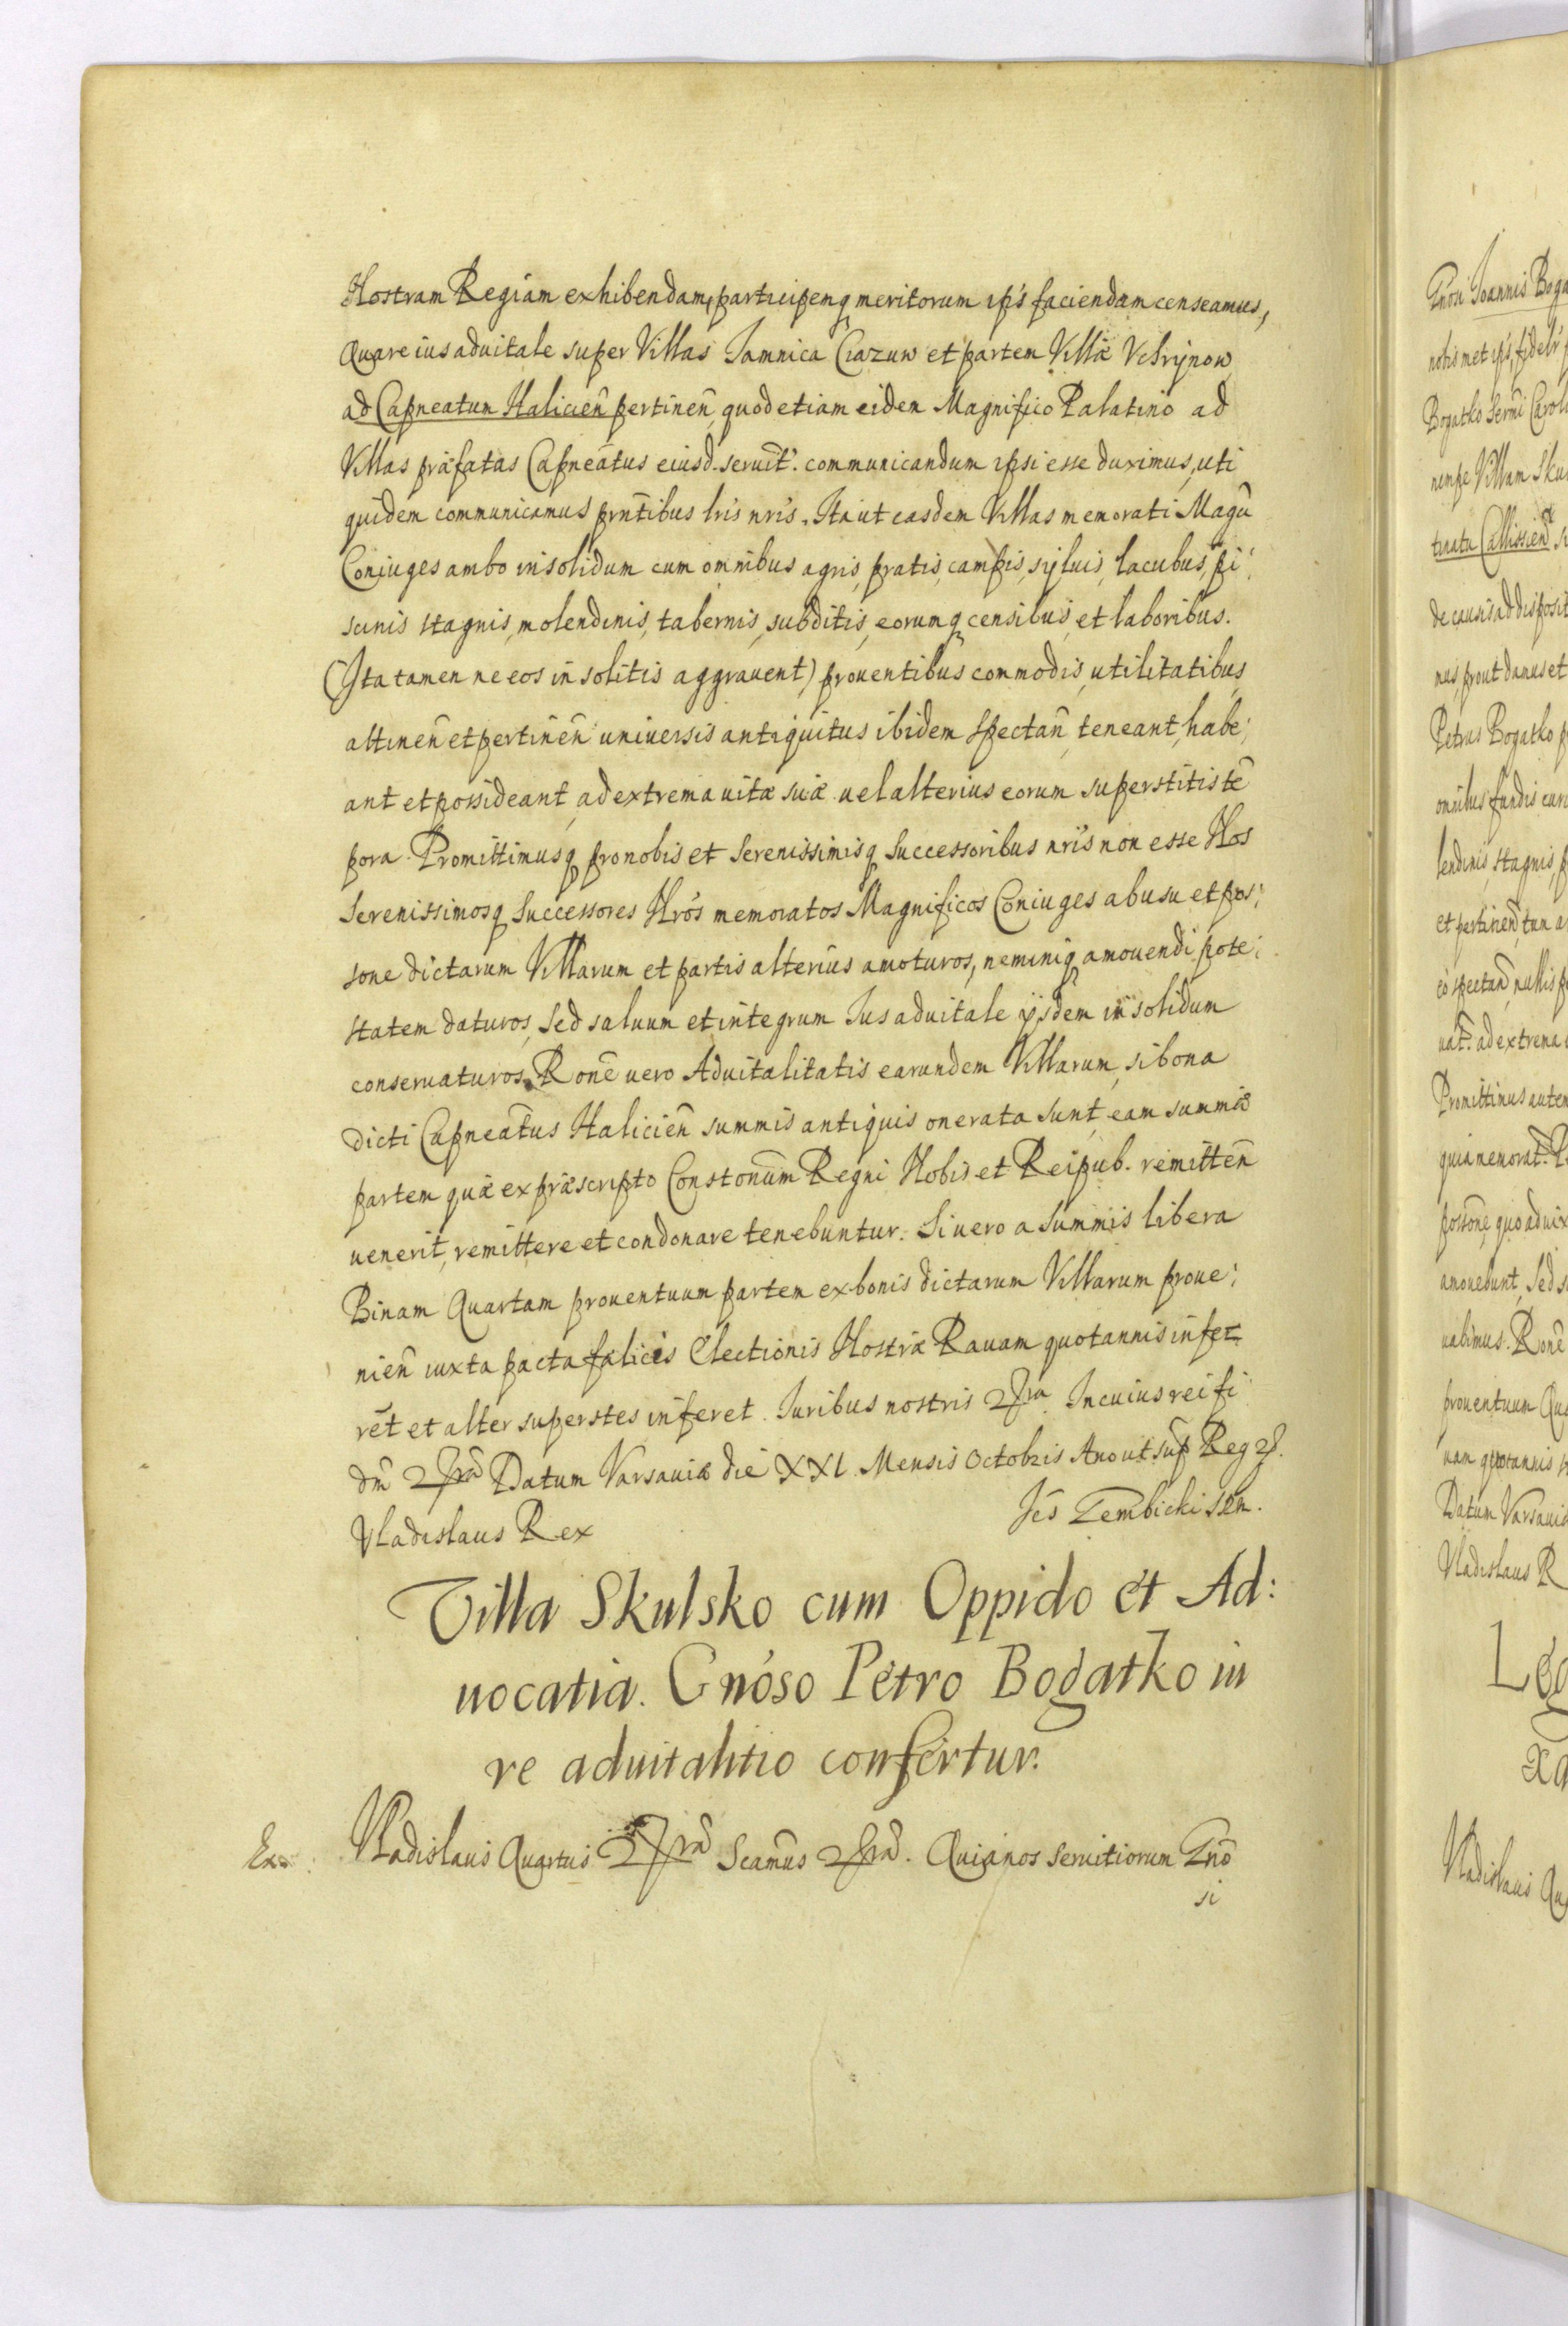 Nostram Regiam exhibendam, participemq meritorum ips faciendam censeamus,
Quare ius aduitale super Villas Jamnica Ciazuw et partem Villæ Vchrynow
ad Capneatum Halicien̄ pertinen̄, quod etiam eidem Magnifico Palatino ad
Villas præfatas Capneatus eiusd. seruit. communicandum ipsi esse duximus, uti
quidem communicamus prn̄tibus lris nris. Ita ut easdem Villas memorati Magn̄
Coniuges ambo in solidum cum omnibus agris, pratis, campis, syluis, lacubus, pi:
scinis stagnis, molendinis, tabernis, subditis, eorumq censibus, et laboribus.
(Ita tamen ne eos insolitis aggrauent) prouentibus commodis, utilitatibus,
attinen̄ et pertinen̄ uniuersis antiquitus ibidem spectan̄, teneant, habe:
ant et possideant, ad extrema uitæ suæ uel alterius eorum superstitis tē
pora. Promittimusq pro nobis et Serenissimisq Successoribus nris non esse Nos
Serenissimosq Successores Nros memoratos Magnificos Coniuges ab usu et pos:
sone dictarum Villarum et partis alterius amoturos, neminiq amouendi pote:
statem daturos, Sed saluum et integrum Ius aduitale ijsdem in solidum
conseruaturos. Rone uero Aduitalitatis earundem Villarum, si bona
dicti Capneatus Halicien̄ summis antiquis onerata sunt, eam summæ
partem quæ ex præscripto Constonum Regni Nobis et Reipub. remitten̄
uenerit, remittere et condonare tenebuntur. Si uero a Summis libera
Binam Quartam prouentuum partem ex bonis dictarum Villarum proue:
nien̄ iuxta pacta fælicis Electionis Nostræ Rauam quotannis infer
rēt et alter superstes inferet. Iuribus nostris &ra. In cuius rei fi
dm̄ &ra Datum Varsauiæ die XXI. Mensis Octobris Ano ut sup Reg &.
Vladislaus Rex
Jes Gembicki Srm.
Villa Skulsko cum Oppido et Ad:
uocatia. Gnoso Petro Bogatko iu
re aduitalitio confertur.
Ex:
Vladislaus Quartus &ra Scamus &ra. Quia nos seruitiorum Gnō
si